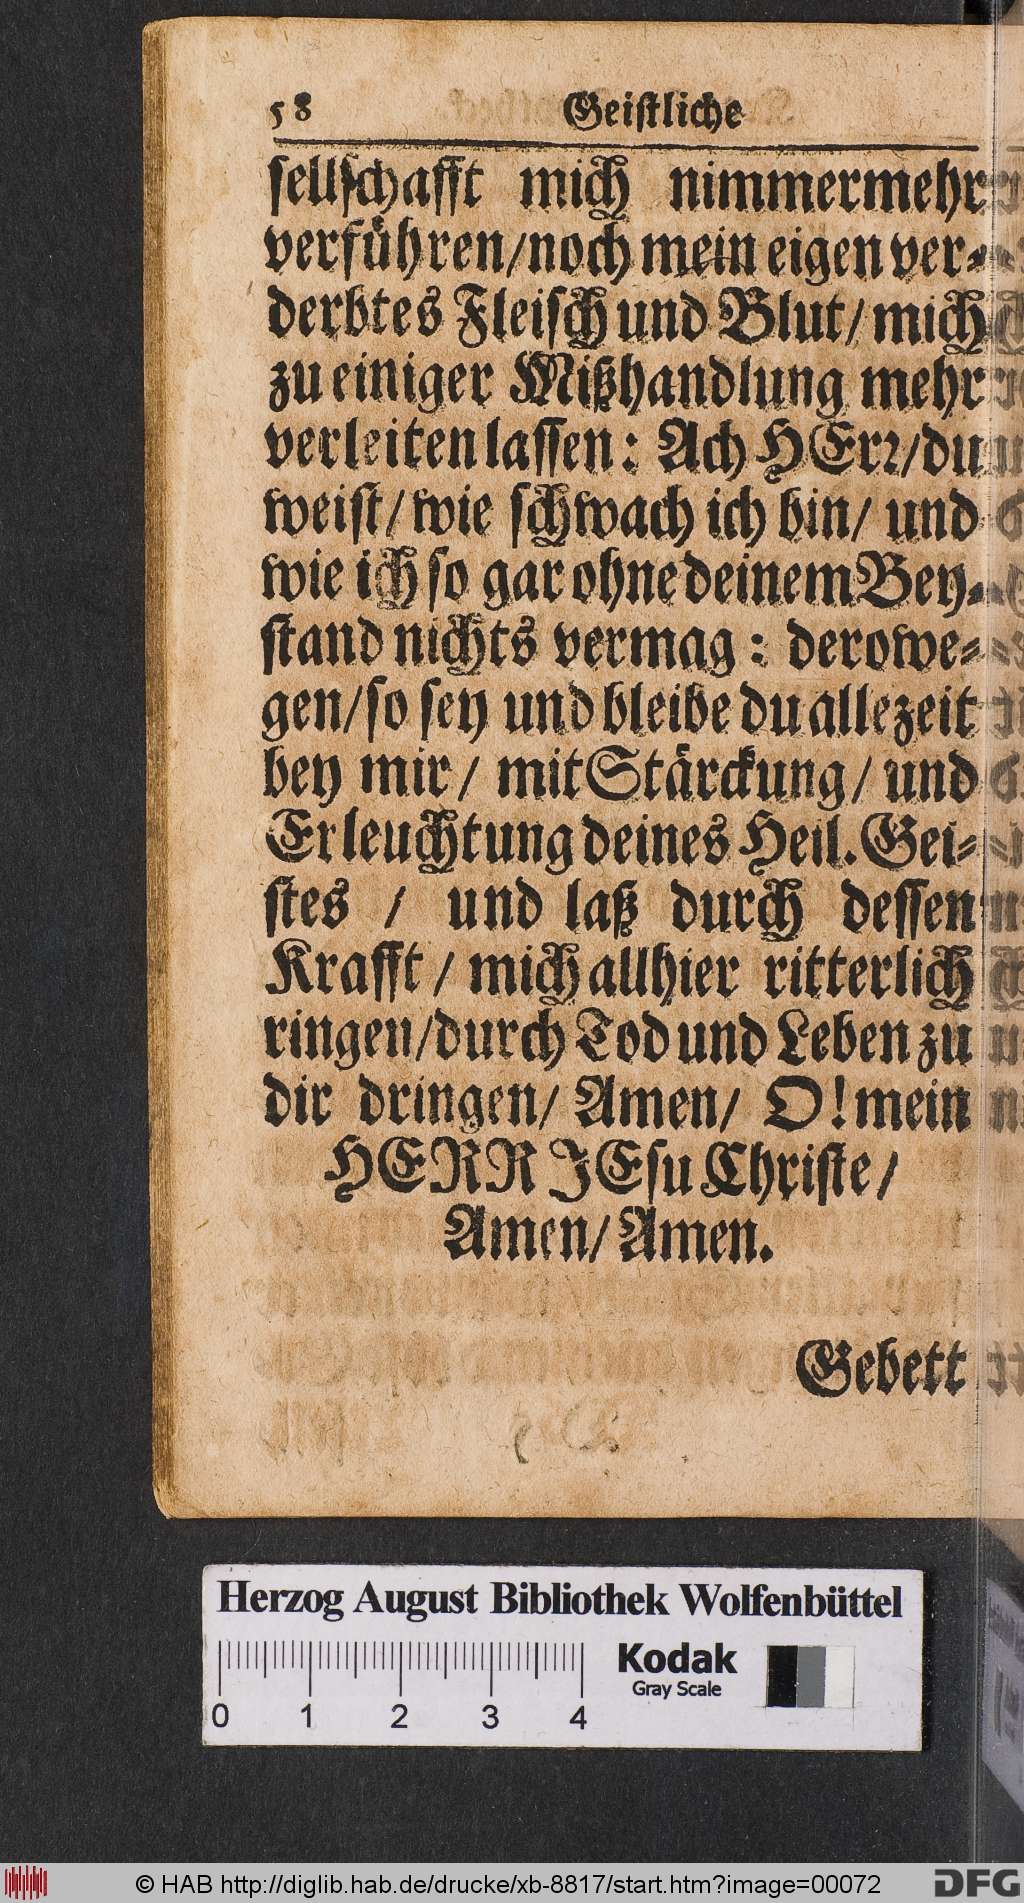 58 Geistliche
sellschafft mich nimmermehr
verführen/noch mein eigen ver-
derbtes Fleisch und Blut/ mich
zu einiger Mißhandlung mehr
verleiten lassen: Ach HErr/du
weist/ wie schwach ich bin/ und
wie ich so gar ohne deinem Bey-
stand nichts vermag: derowe-
gen/so sey und bleibe du allezeit
bey mir/ mit Stärckung/ und
Erleuchtung deines Heil. Gei-
stes / und laß durch dessen
Krafft/ mich allhier ritterlich
ringen/durch Tod und Leben zu
dir dringen/ Amen/ O! mein
HERR JEsu Christe/
Amen/ Amen.
Gebett
Herzog August Bibliothek Wolfenbüttel
Kodak
Gray Scale
0 1 2 3 4
© HAB http://diglib.hab.de/drucke/xb-8817/start.htm?image=00072
DFG